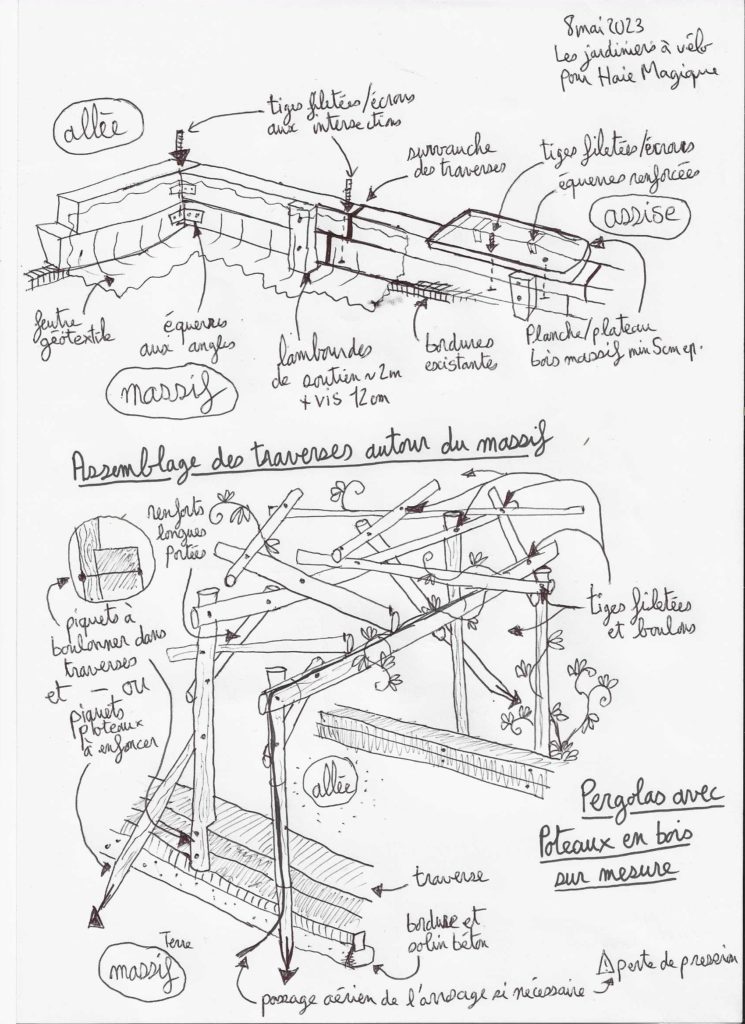 8 mai 2023
Les jardiniers à vélo
pour Haie Magique
allée
tiges filetées/écrous
aux intersections
survauche
des traverses
tiges filetées/écrous
équerres renforcées
assise
feutre
géotextile
équerres
aux angles
massif
lambourdes
de soutien ~2m
+ vis 12cm
bordures
existantes
Planche/plateau
bois massif min 5cm ep.
Assemblage des traverses autour du massif
renforts
longues
portées
piquets à
boulonner dans
traverses
et — ou
piquets
poteaux
à enfoncer
tiges filetées
et boulons
allée
Pergolas avec
Poteaux en bois
sur mesure
traverse
bordure et
solin béton
Terre
massif
passage aérien de l'arrosage si nécessaire
⚠ perte de pression